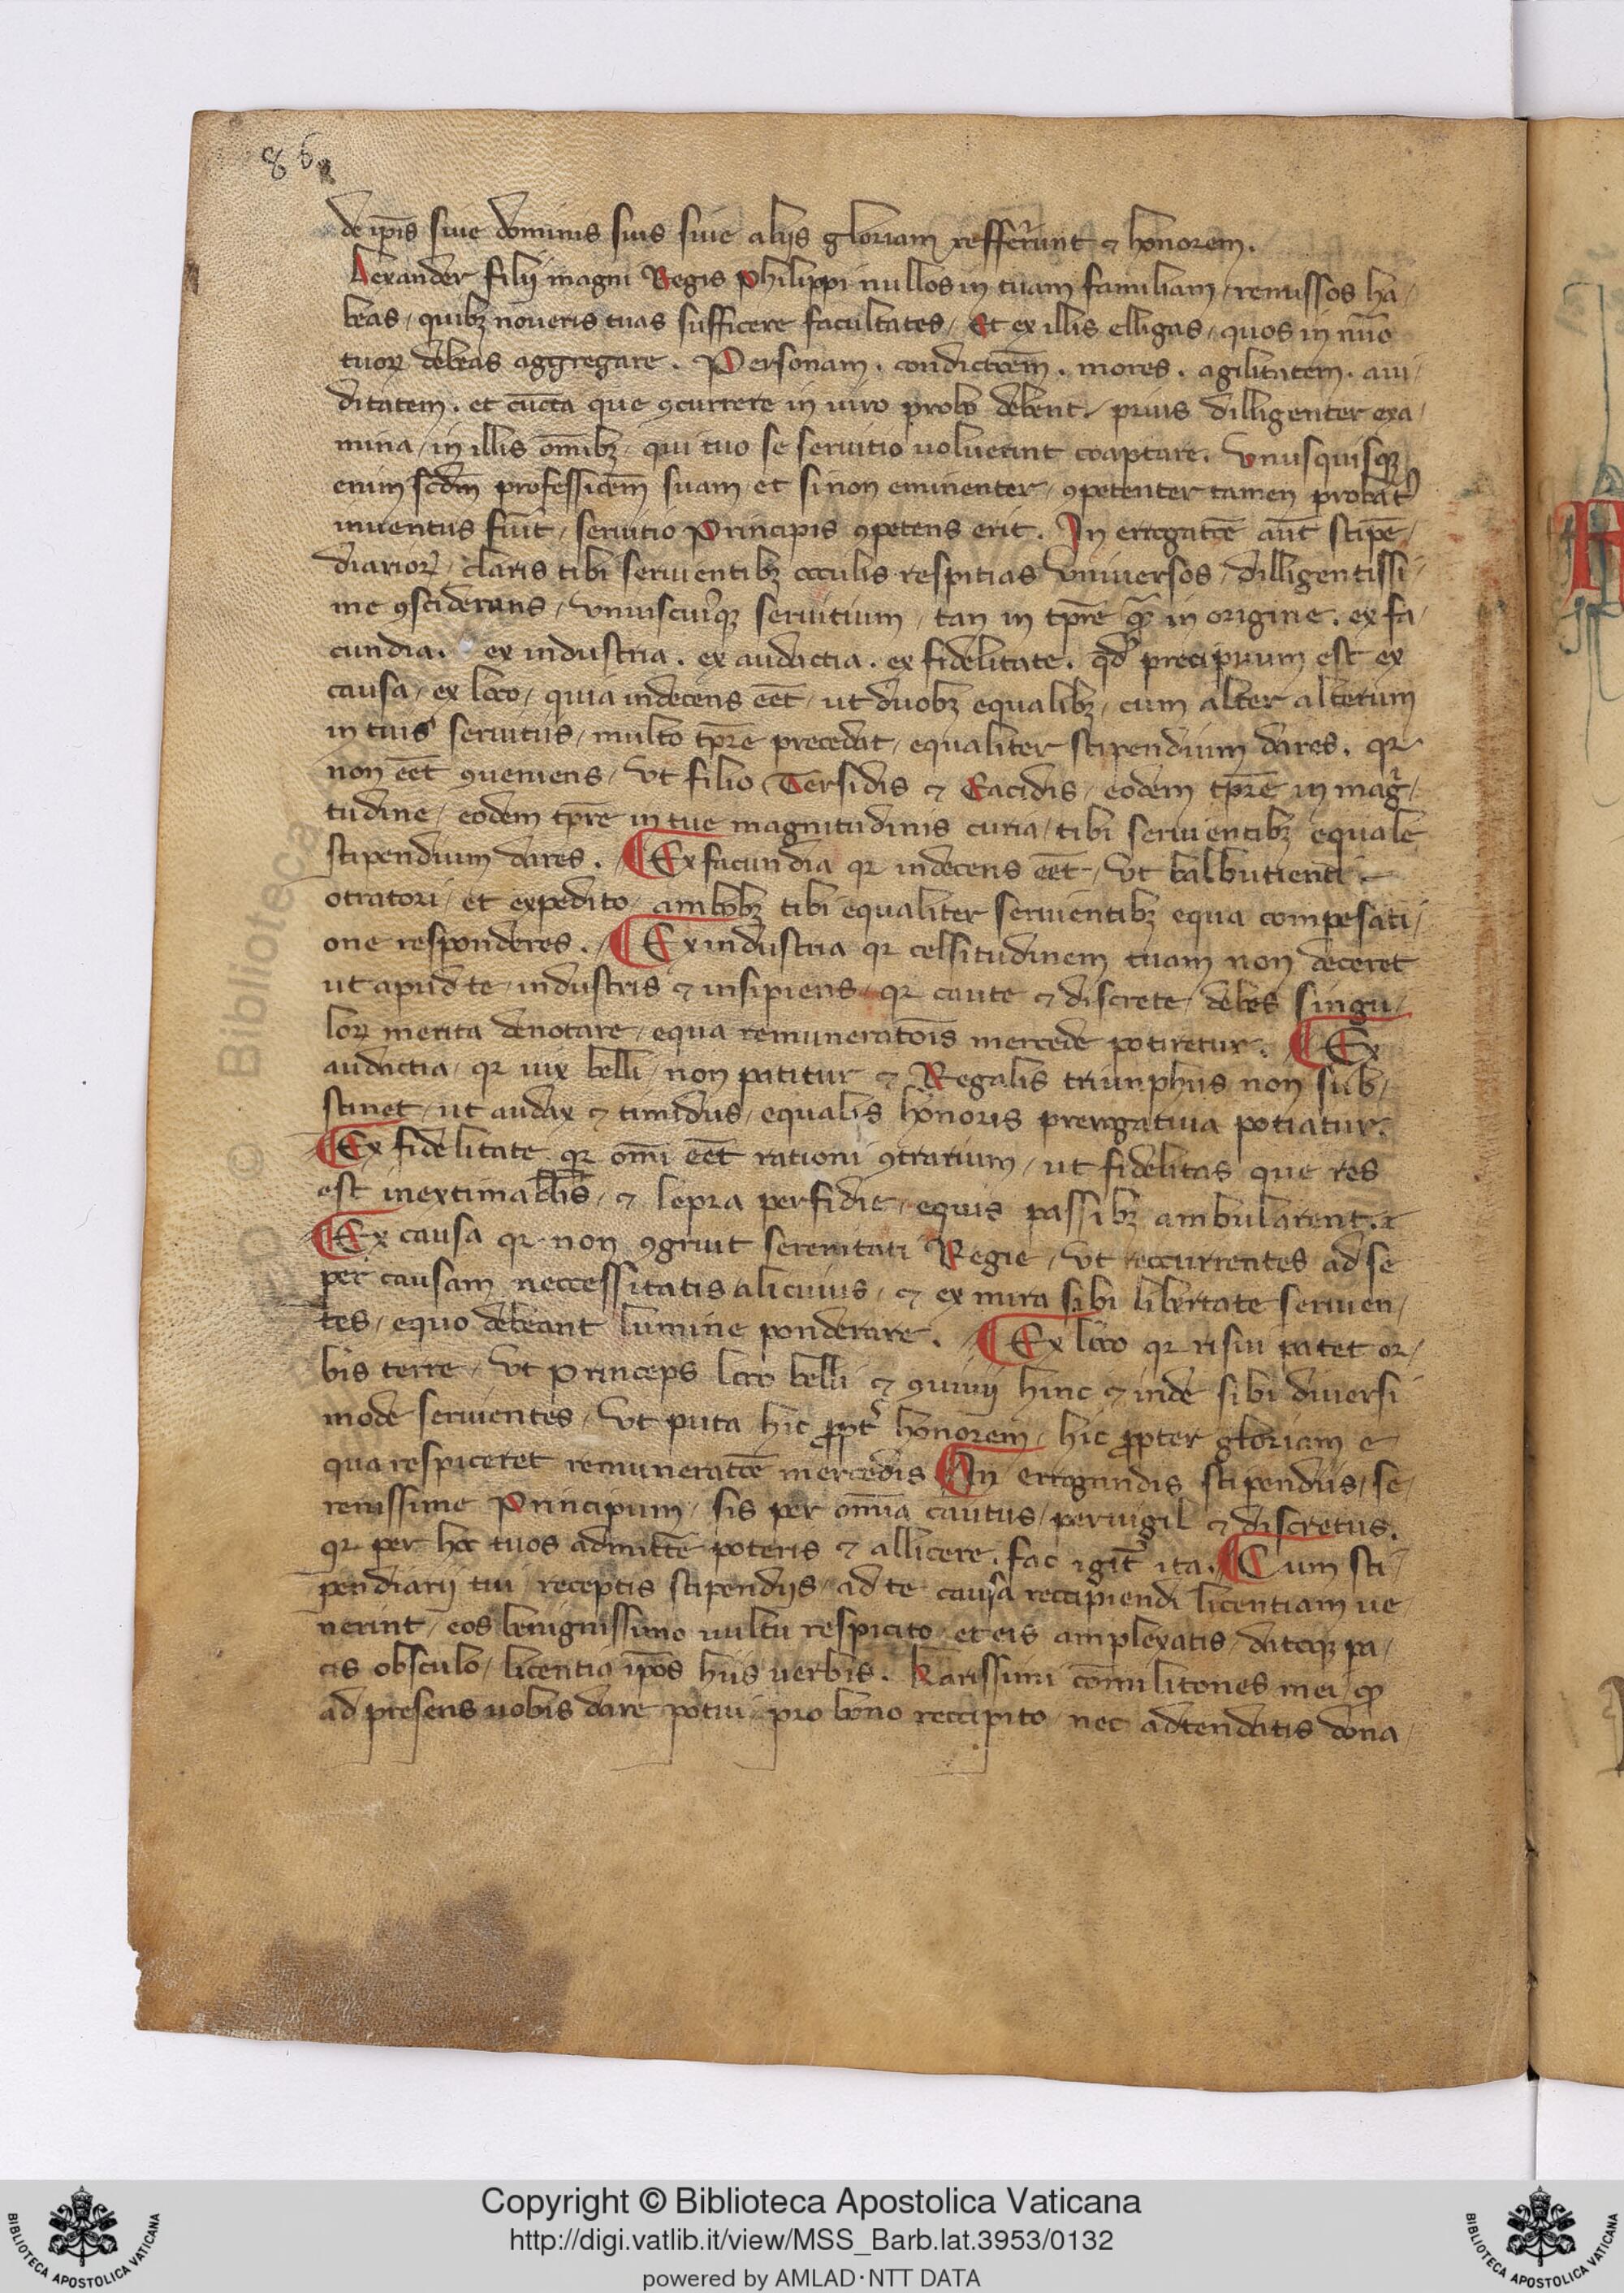 86
de ip̄is siue dominis suis siue alijs gloriam reffer̄unt ⁊ honorem.
Alexander filij magni Regis Philippi nullos in tuam familiam / remissos ha/
beas / quibꝫ noueris tuas sufficere facultates / Et ex illis elligas / quos in nu̅o
tuoꝝ debeas aggregare . Personam . condicto̅em . mores . agilitatem . aui/
ditatem . et cu̅cta que ꝯcurrere in uiro probo debent / prius dilligenter exa/
mina / in illis om̅ibꝫ / qui tuo se seruitio uoluerint coaptare. Vnusquisqꝫ
enim scd̅m professioe̅m suam et si non eminenter / ꝯpetenter tamen probat᾽
inuentus fui̅t / seruitio Principis ꝯpetens erit. In erogatoe̅ aut̅ stipe̅/
diarioꝝ / claris tibi seruientibꝫ occulis respitias vniuersos / dilligentissi/
me ꝯsiderans / vniuscuiusqꝫ seruitium / tan in tp̅re qᷓ in origine . ex fa/
cundia . ex industria . ex audactia . ex fidelitate . qd̕ precipuum est ex
causa / ex loco / quia indecens ee̅t / ut duobꝫ equalibꝫ / cum alter alterum
in tuis seruitiis / multo tp̅re precedat / equaliter stipendium dares. qꝛ
non ee̅t ꝯueniens / Vt filio Tersidis ⁊ Eacidis / eodem tp̅re in mag̕/
tudine / eodem tp̅re in tue magnitudinis curia / tibi seruientibꝫ equale
stipendium dares. / ¶ Ex facundia qꝛ indecens ee̅t / Vt balbutienti
otratori / et expedito ambobꝫ tibi equaliter seruientibꝫ equa compesati/
one responderes. / ¶ Ex industria qꝛ celsitudinem tuam non deceret
ut apud te / industris ⁊ insipiens / qꝛ caute ⁊ discrete / debes singu/
loꝝ merita denotare / equa remunerato̅is mercede potiretur. / ¶ Ex
audactia / qꝛ uix belli / non patitur ⁊ Regalis triunphus non sub/
stinet / ut audax ⁊ timidus / equalis honoris prerogatiua potiatur.
¶ Ex fidelitate qꝛ om̅i ee̅t rationi ꝯtrarium / ut fidelitas que res
est inextimabl̅is / ⁊ lepra perfidie / equis passibꝫ ambularent.
¶ Ex causa qꝛ non ꝯgruit serenitati Regie / Vt reccurrentes ad se
per causam neccessitatis alicuius / ⁊ ex mira sibi libertate seruien/
tes / equo debeant lumine ponderare. / ¶ Ex loco qꝛ risui patet or/
bis terre / Vt princeps loco belli ⁊ ꝯuiuij hinc ⁊ inde sibi diuersi
mode seruientes / Vt puta hic ꝓpt̕ honorem / hic ꝓpter gloriam e
qua respiceret remuneratoe̅ mercedis ¶ In erogandis stipendiis / se/
renissime Principum / sis per om̅ia cautus / peruigil ⁊ discretus.
qꝛ per hoc tuos admitte̅ poteris ⁊ allicere. fac igit̕ ita. / ¶ Cum sti/
pendiarij tui / receptis stipendijs / ad te causa reccipiendi licentiam ue/
nerint / eos benignissimo uultu respicito / et eis amplexatis / datoqꝫ pa/
cis obsculo / licentia ip̅os hiis uerbis. Karissimi co̅militones mei / qꝫ
ad presens uobis dare potui / pro bono reccipito / nec adtendatis dona/
Copyright © Biblioteca Apostolica Vaticana
http://digi.vatlib.it/view/MSS_Barb.lat.3953/0132
powered by AMLAD·NTT DATA
BIBLIOTECA APOSTOLICA VATICANA
BIBLIOTECA APOSTOLICA VATICANA